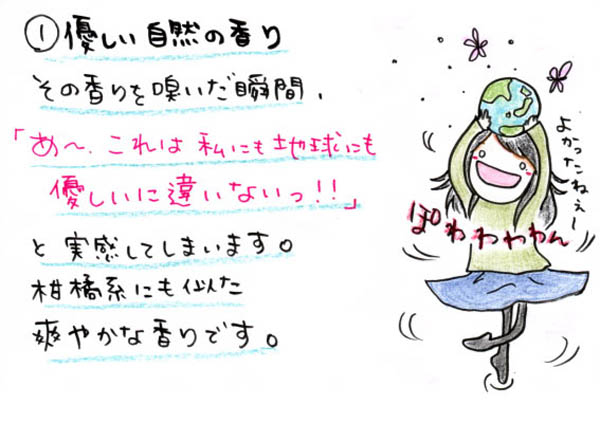 ① 優しい自然の香り
その香りを嗅いだ瞬間、
「あ〜、これは私にも地球にも
優しいに違いないっ!!」
と実感してしまいます。
柑橘系にも似た
爽やかな香りです。
よかったねぇー
ぽわわわわん